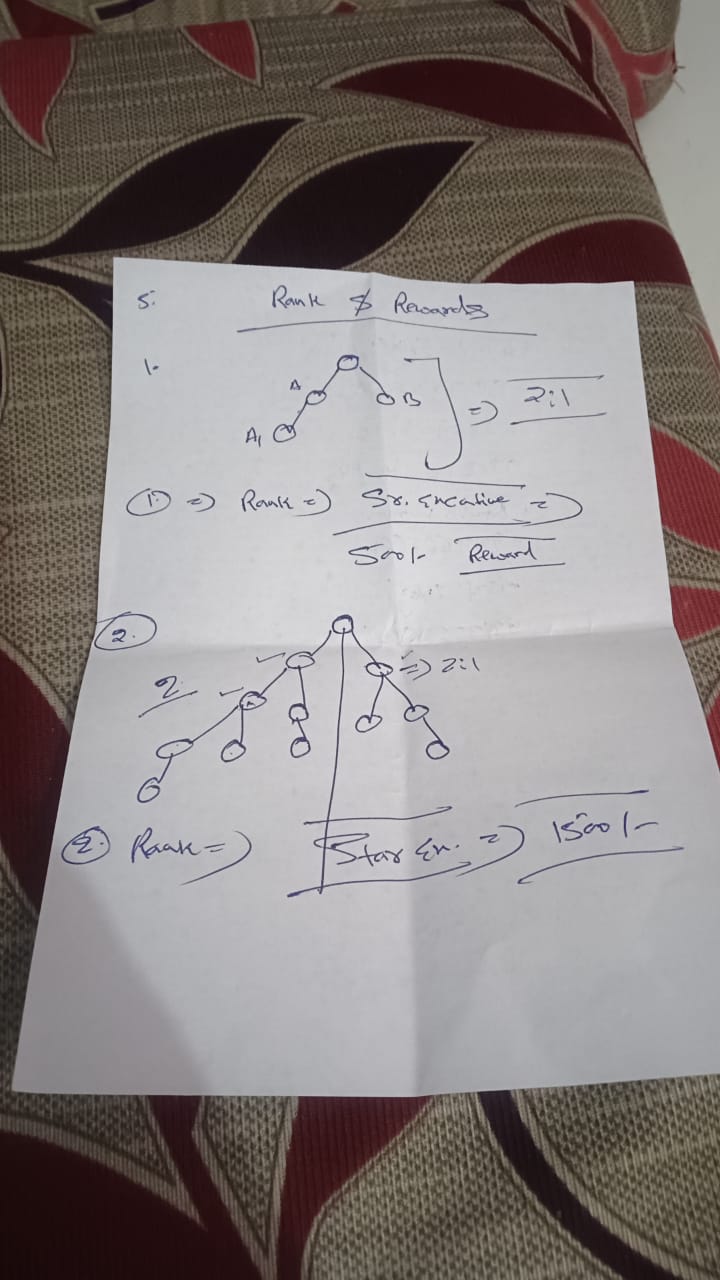 5. Rank & Rewards
1.
A
B
A1
=> 2:1
① => Rank => Sr. Excative =>
500/- Reward
②.
=> 2:1
2
②. Rank => Star Ex. => 1500/-